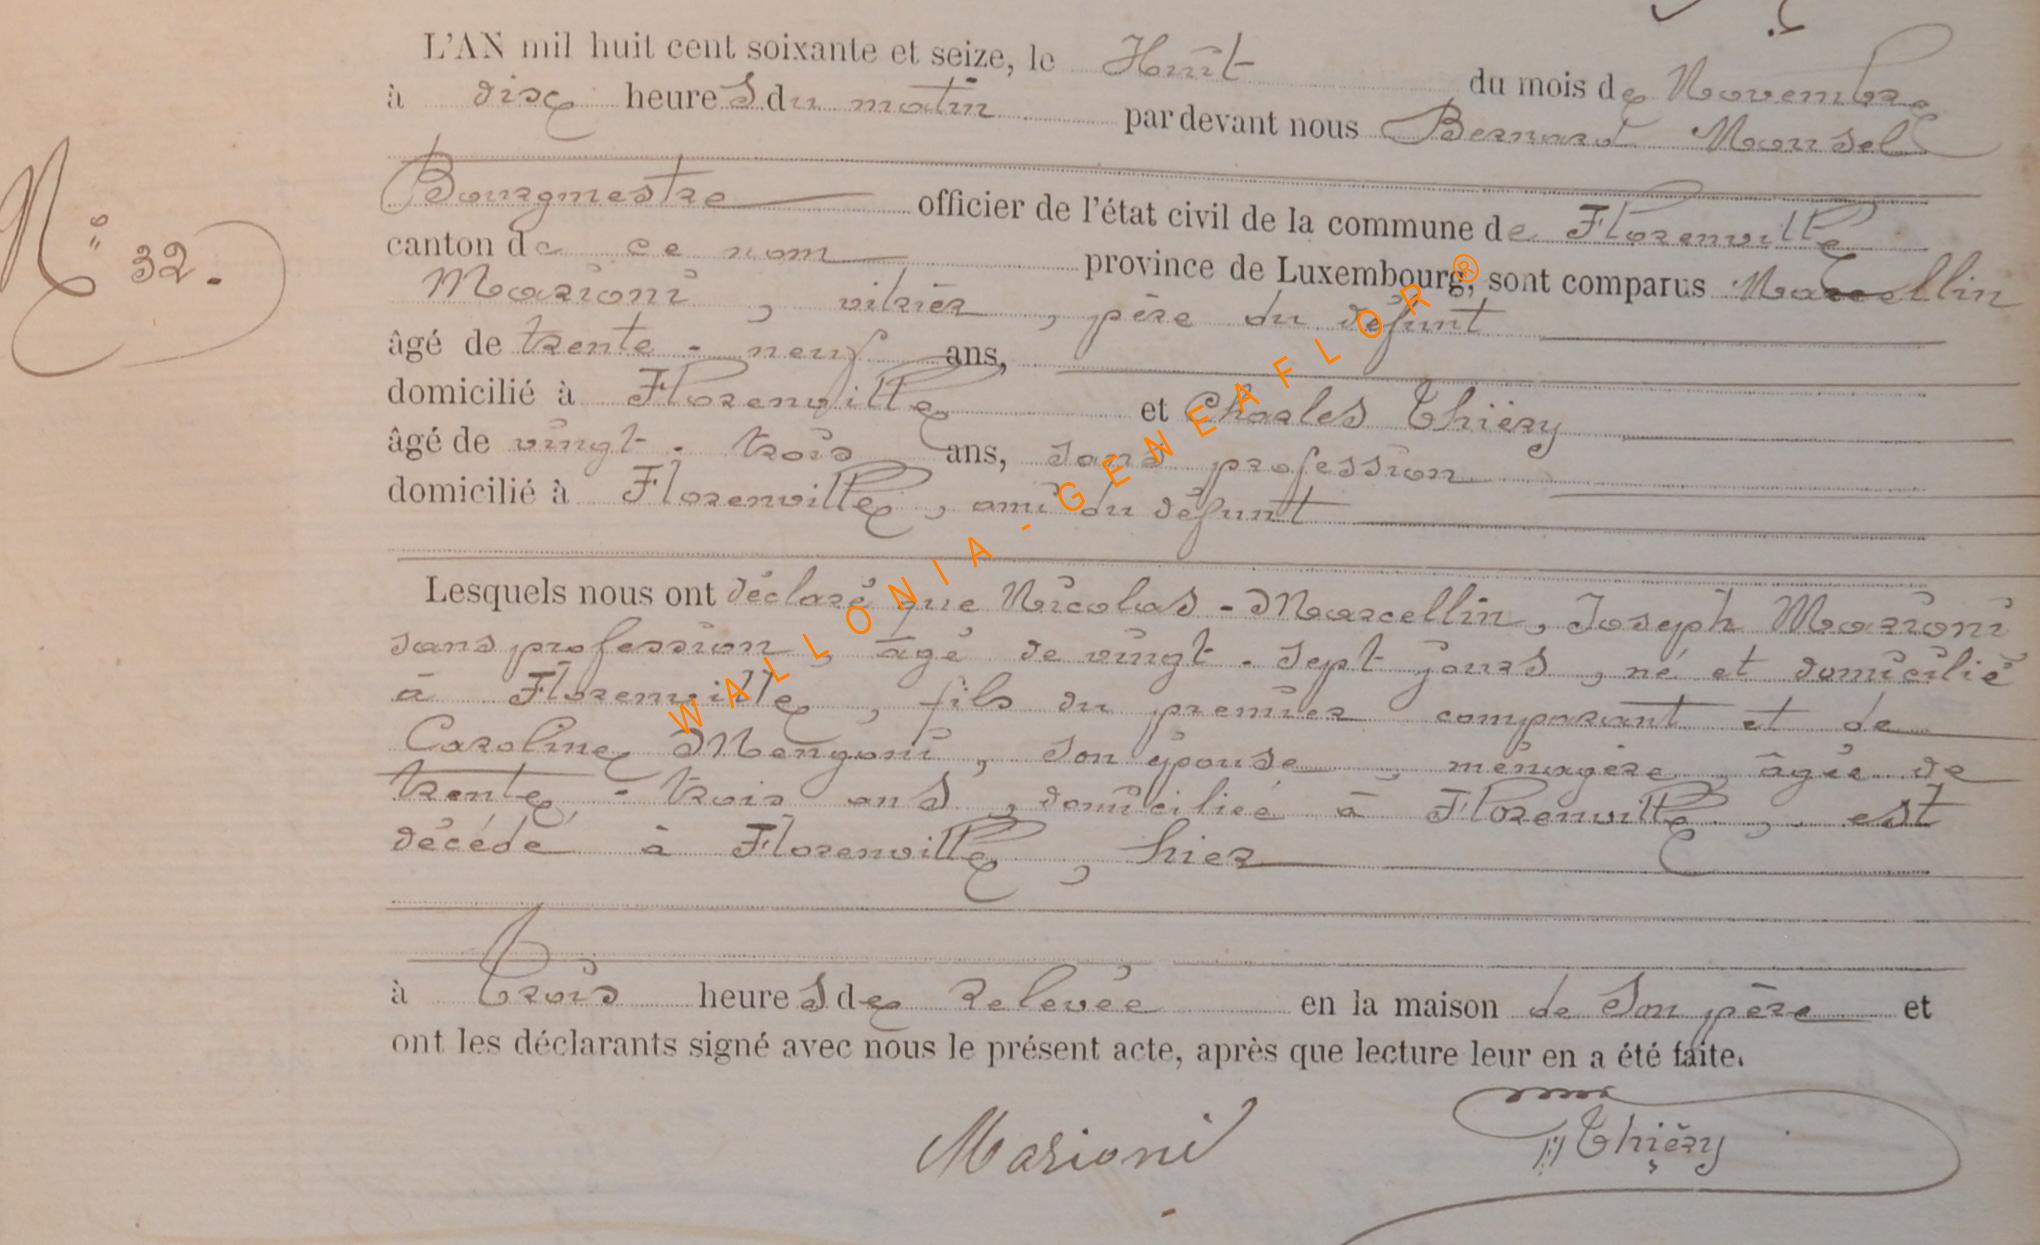 L'AN mil huit cent soixante et seize, le Huit du mois de Novembre
à dix heures du matin par devant nous Bernard Monsel
Bourgmestre officier de l'état civil de la commune de Florenville
canton de ce nom province de Luxembourg, sont comparus Marcellin
Marioni, vitrier, père du défunt
âgé de trente-neuf ans,
domicilié à Florenville et Charles Thiéry
âgé de vingt-trois ans, sans profession
domicilié à Florenville, ami du défunt
N° 32.
Lesquels nous ont déclaré que Nicolas-Marcellin, Joseph Marioni
sans profession, âgé de vingt-sept jours, né et domicilié
à Florenville, fils du premier comparant et de
Caroline Mengoni, son épouse, ménagère, âgée de
trente-trois ans, domiciliée à Florenville, est
décédé à Florenville, hier
à Trois heures de Relevée en la maison de son père et
ont les déclarants signé avec nous le présent acte, après que lecture leur en a été faite.
Marioni Thiéry
WALLONIA-GENEAFLOR®